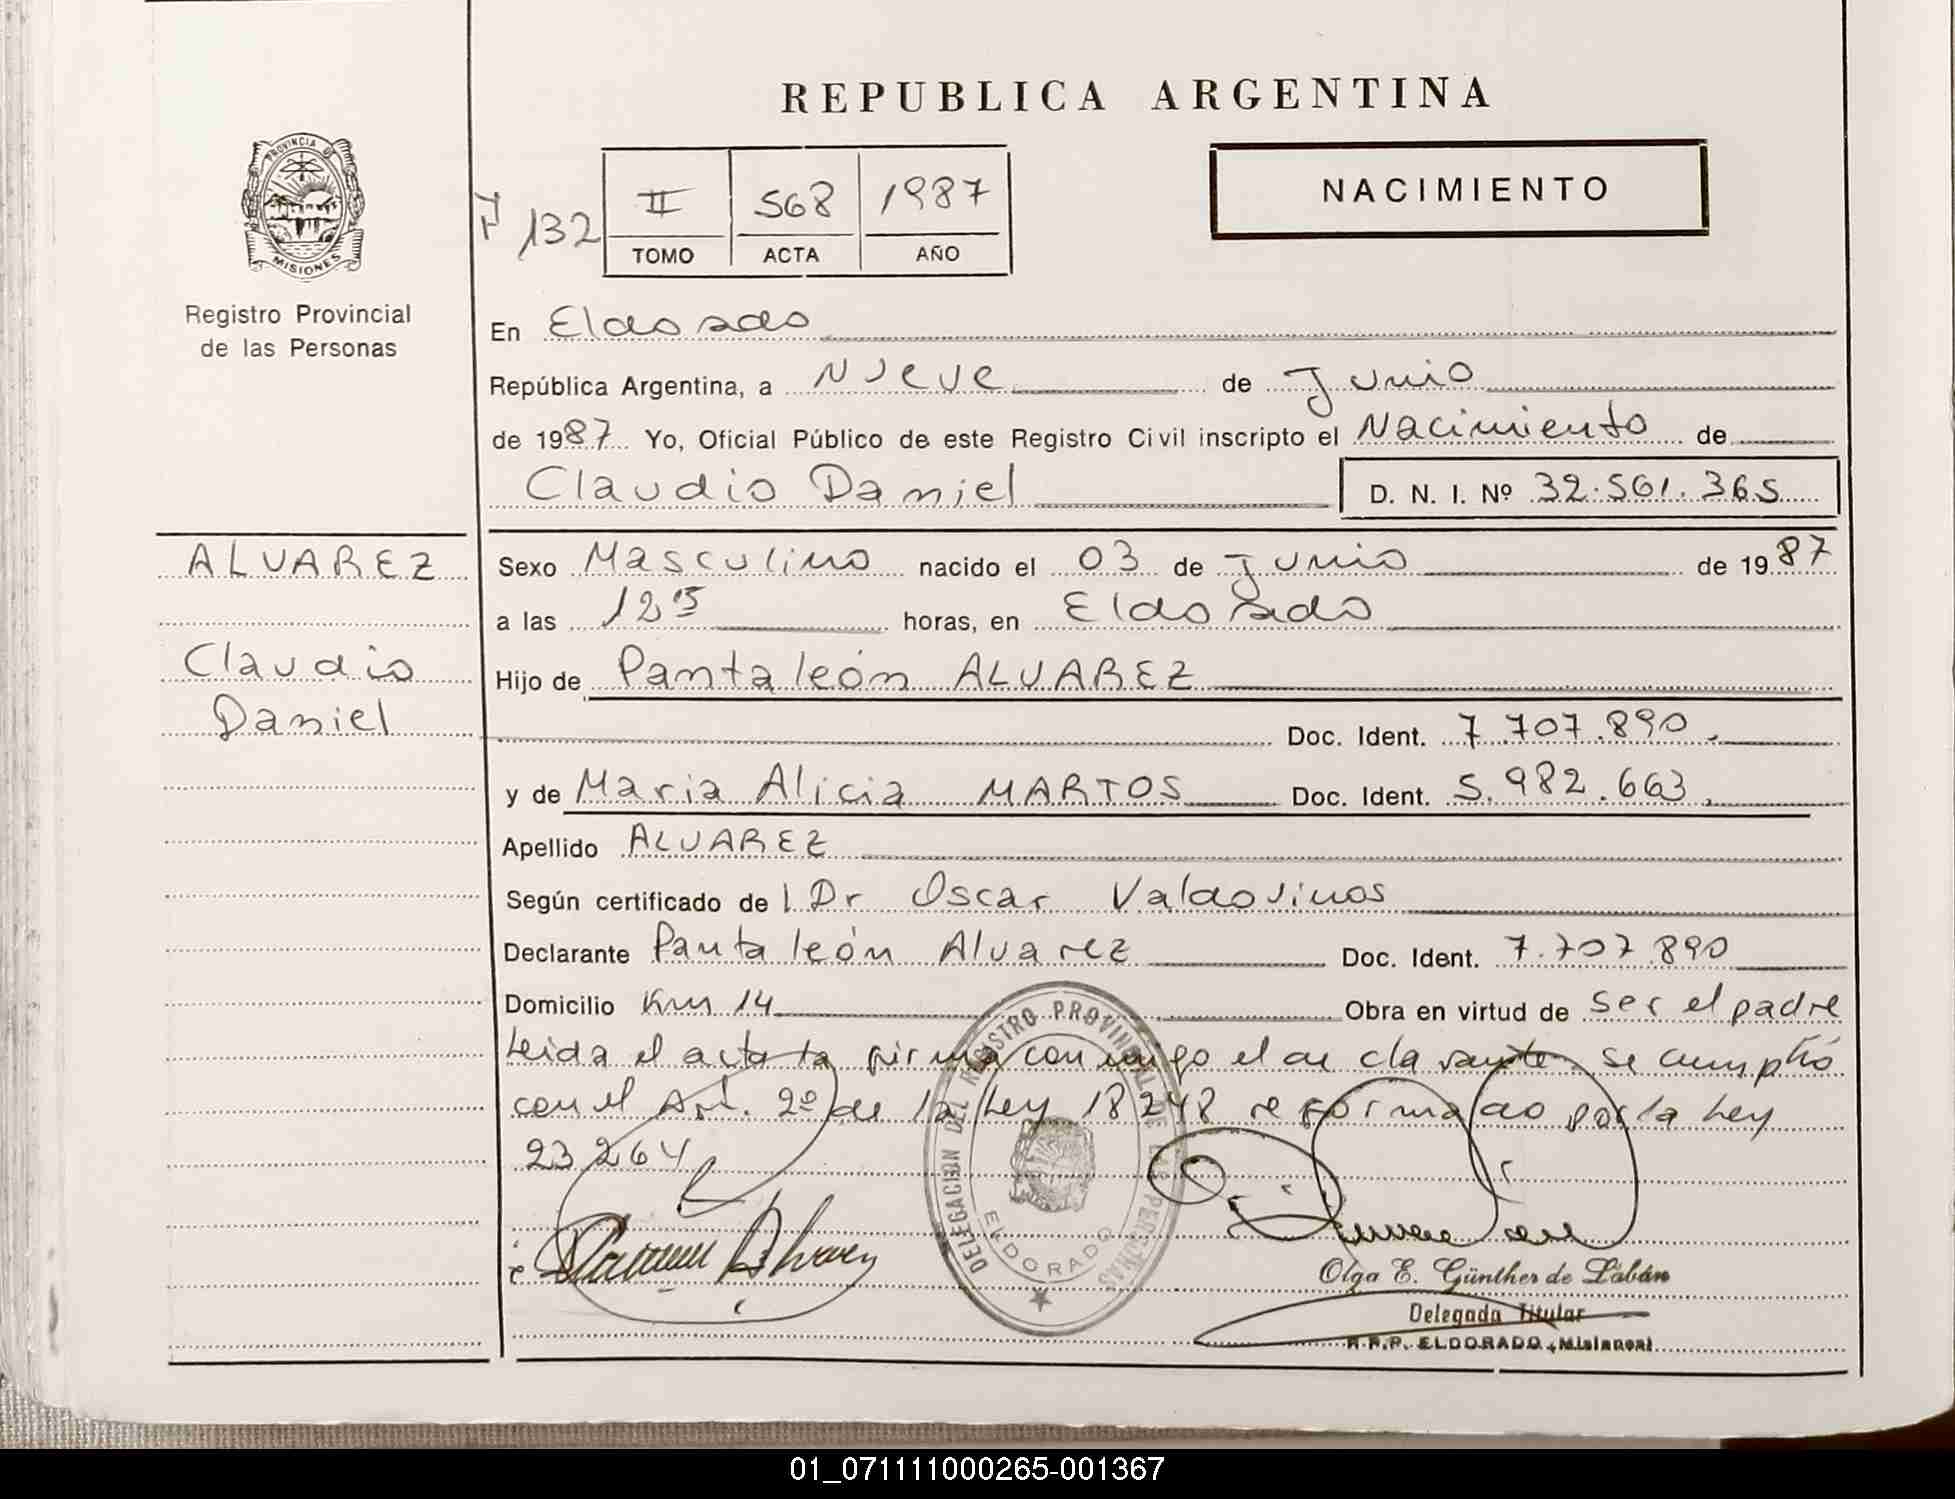 REPUBLICA ARGENTINA
PROVINCIA D
MISIONES
Registro Provincial
de las Personas
F 132
II 568 1987
TOMO ACTA AÑO
NACIMIENTO
En Eldorado
República Argentina, a Nueve de Junio
de 1987 Yo, Oficial Público de este Registro Civil inscripto el Nacimiento de
Claudio Daniel D. N. I. Nº 32.561.365
ALVAREZ
Claudio
Daniel
Sexo Masculino nacido el 03 de Junio de 1987
a las 12 15 horas, en Eldorado
Hijo de Pantaleón ALVAREZ
Doc. Ident. 7.707.890.
y de Maria Alicia MARTOS Doc. Ident. 5.982.663.
Apellido ALVAREZ
Según certificado de l Dr Oscar Valdovinos
Declarante Pantaleón Alvarez Doc. Ident. 7.707.890
Domicilio Km 14 Obra en virtud de ser el padre
Leida el acta la firma conmigo el declarante. se cumplió
con el Art. 2º de la Ley 18248 reformado por la Ley
23264
DELEGACION DEL REGISTRO PROVINCIAL DE LAS PERSONAS
ELDORADO
Olga E. Günther de Labán
Delegada Titular
R.P.P. ELDORADO (Misiones)
01_071111000265-001367